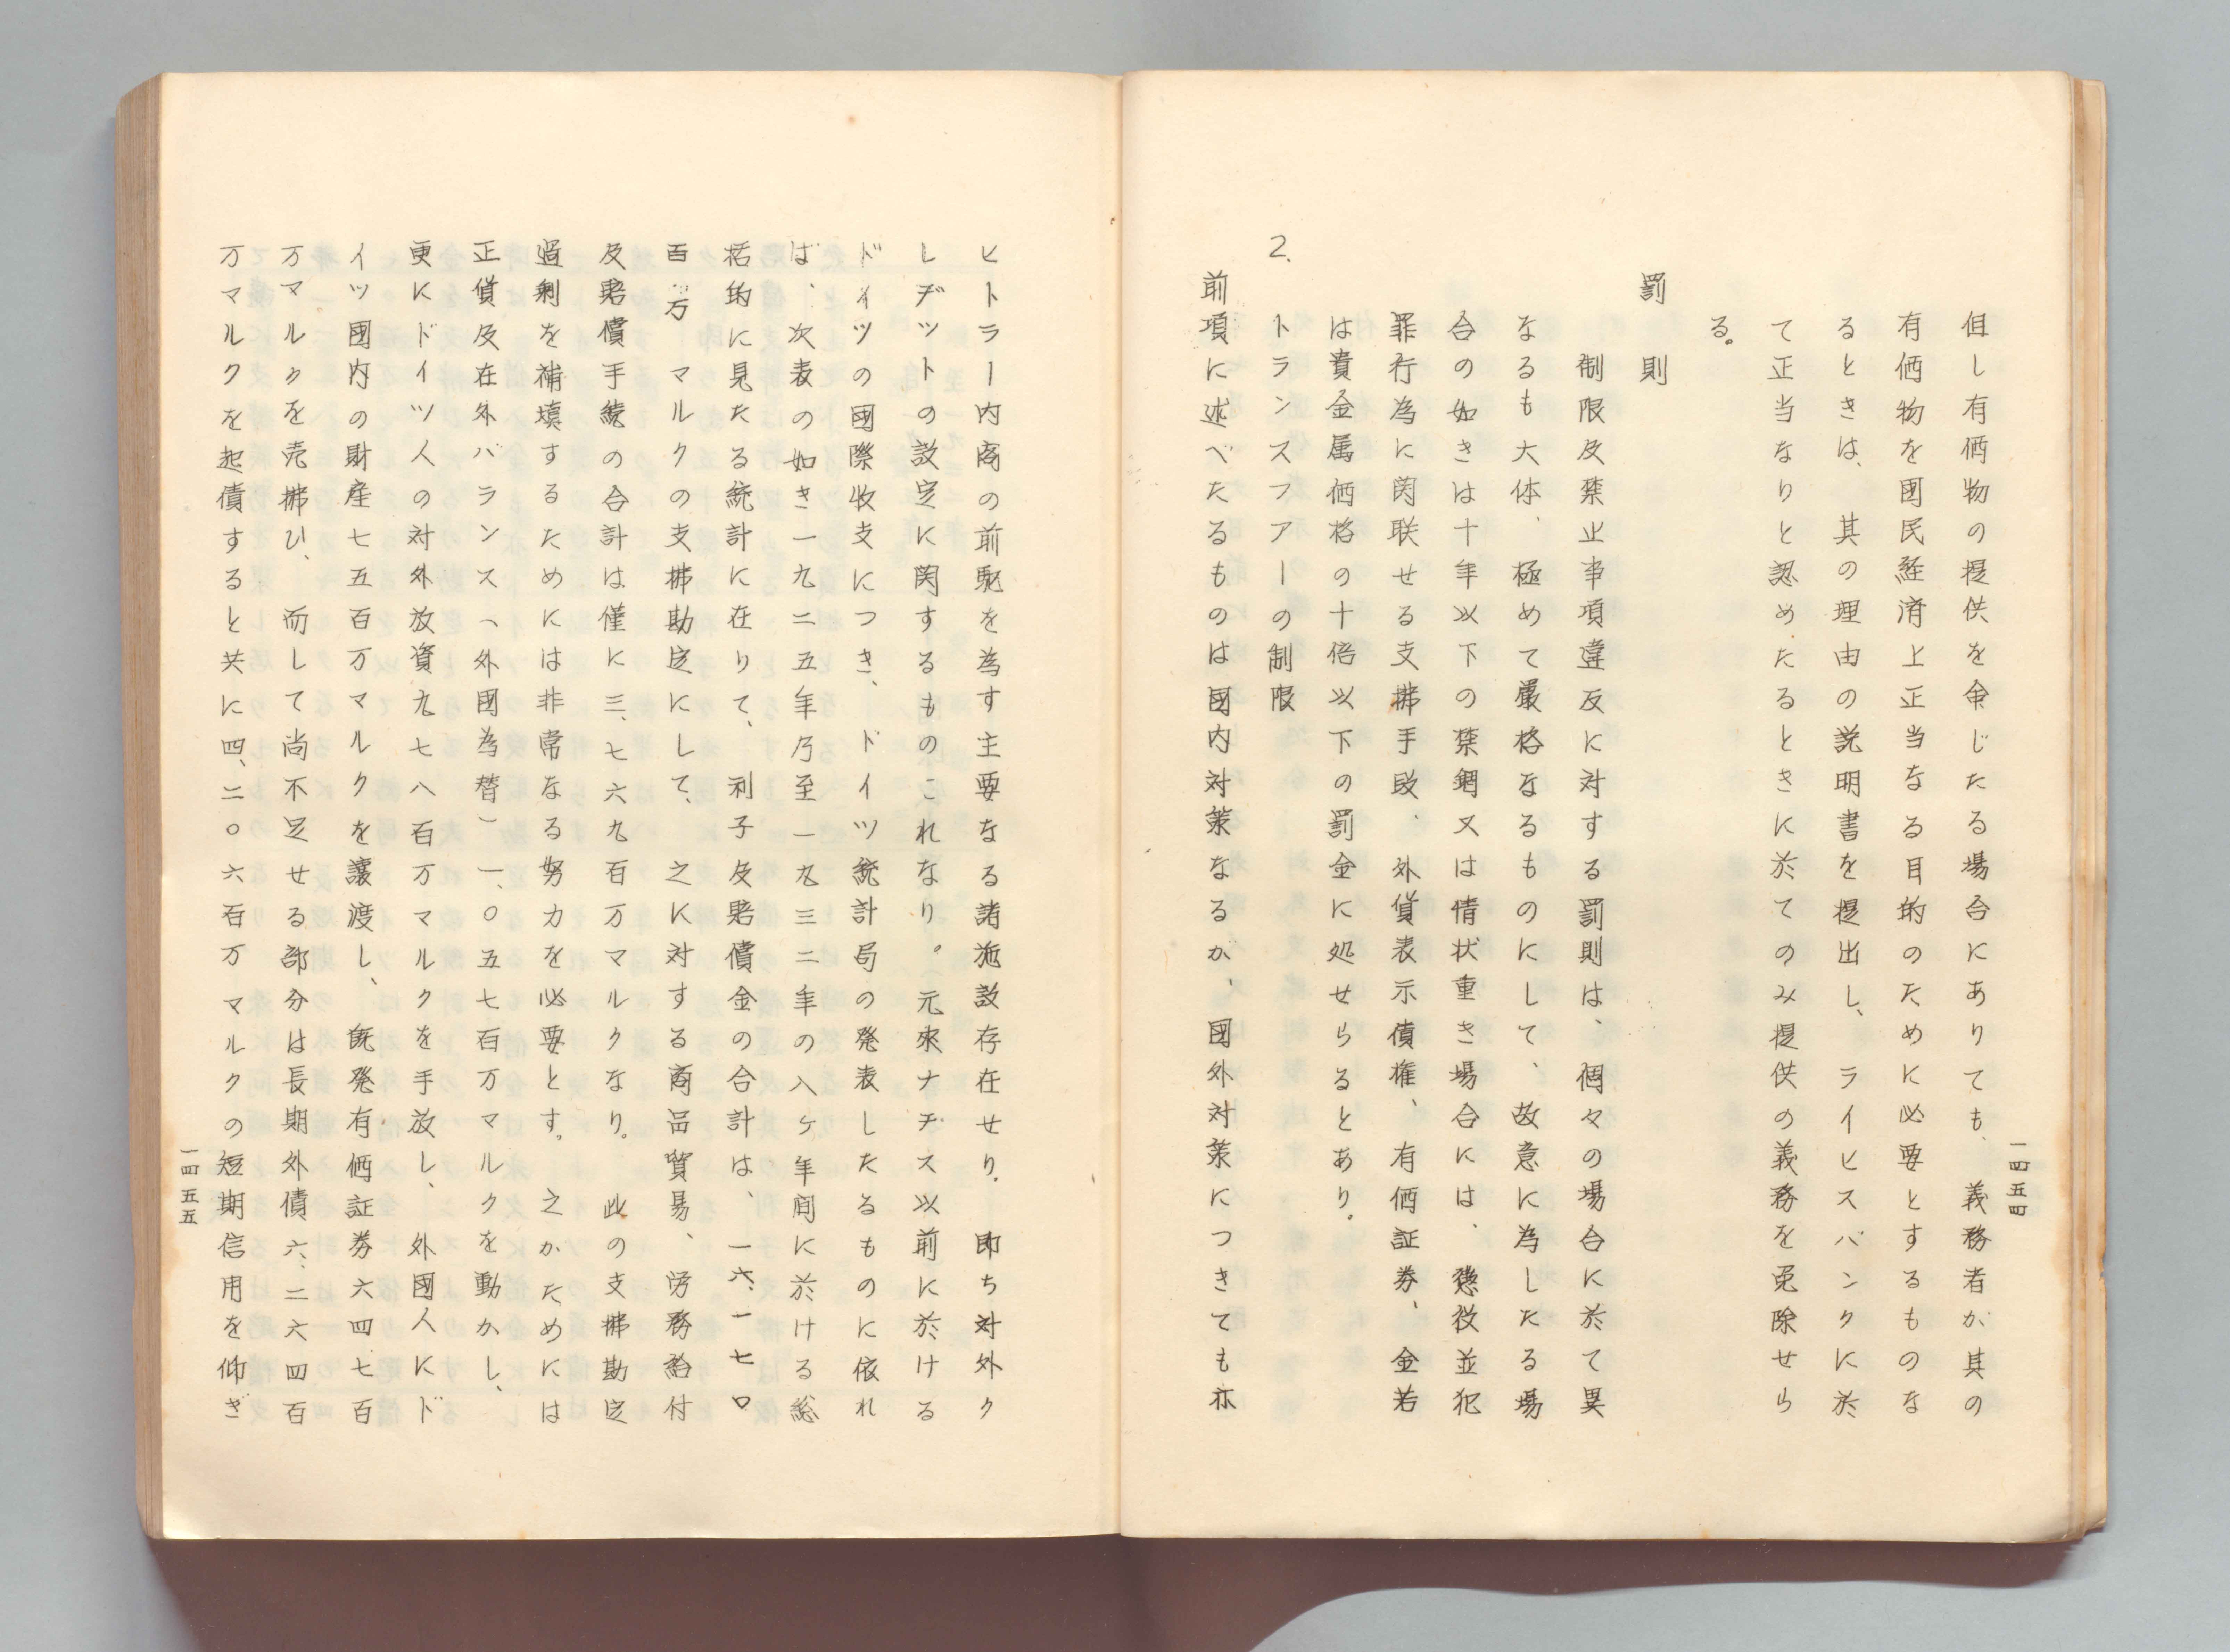 但し有価物の提供を命じたる場合にありても、義務者が其の
有価物を國民経済上正当なる目的のために必要とするものな
るときは、其の理由の説明書を提出し、ライヒスバンクに於
て正当なりと認めたるときに於てのみ提供の義務を免除せら
る。
罰則
制限及禁止事項違反に対する罰則は、個々の場合に於て異
なるも大体、極めて厳格なるものにして、故意に為したる場
合の如きは十年以下の禁錮又は情状重き場合には、懲役並犯
罪行為に関联せる支拂手段、外貨表示債権、有価証券、金若
は貴金属価格の十倍以下の罰金に処せらるとあり。
2.トランスフアーの制限
前項に述べたるものは國内対策なるが、國外対策につきても亦
一四五四
ヒトラー内商の前駆を為す主要なる諸施設存在せり。即ち対外ク
レヂットの設定に関するものこれなり。元來ナチス以前に於ける
ドイツの國際收支につき、ドイツ統計局の発表したるものに依れ
ば、次表の如き一九二五年乃至一九三二年の八ケ年間に於ける総
括的に見たる統計に在りて、利子及賠償金の合計は、一六、一七〇
百万マルクの支拂勘定にして、之に対する商品貿易、労務給付
及賠償手続の合計は僅に三、七六九百万マルクなり。此の支拂勘定
過剰を補填するためには非常なる努力を必要とす。之がためには
正貨及在外バランス(外國為替)一、〇五七百万マルクを動かし、
更にドイツ人の対外放資九七八百万マルクを手放し、外國人にド
イツ國内の財産七五百万マルクを譲渡し、既発有価証券六四七百
万マルクを売拂ひ、而して尚不足せる部分は長期外債六、二六四百
万マルクを起債すると共に四、二〇六百万マルクの短期信用を仰ぎ
一四五五